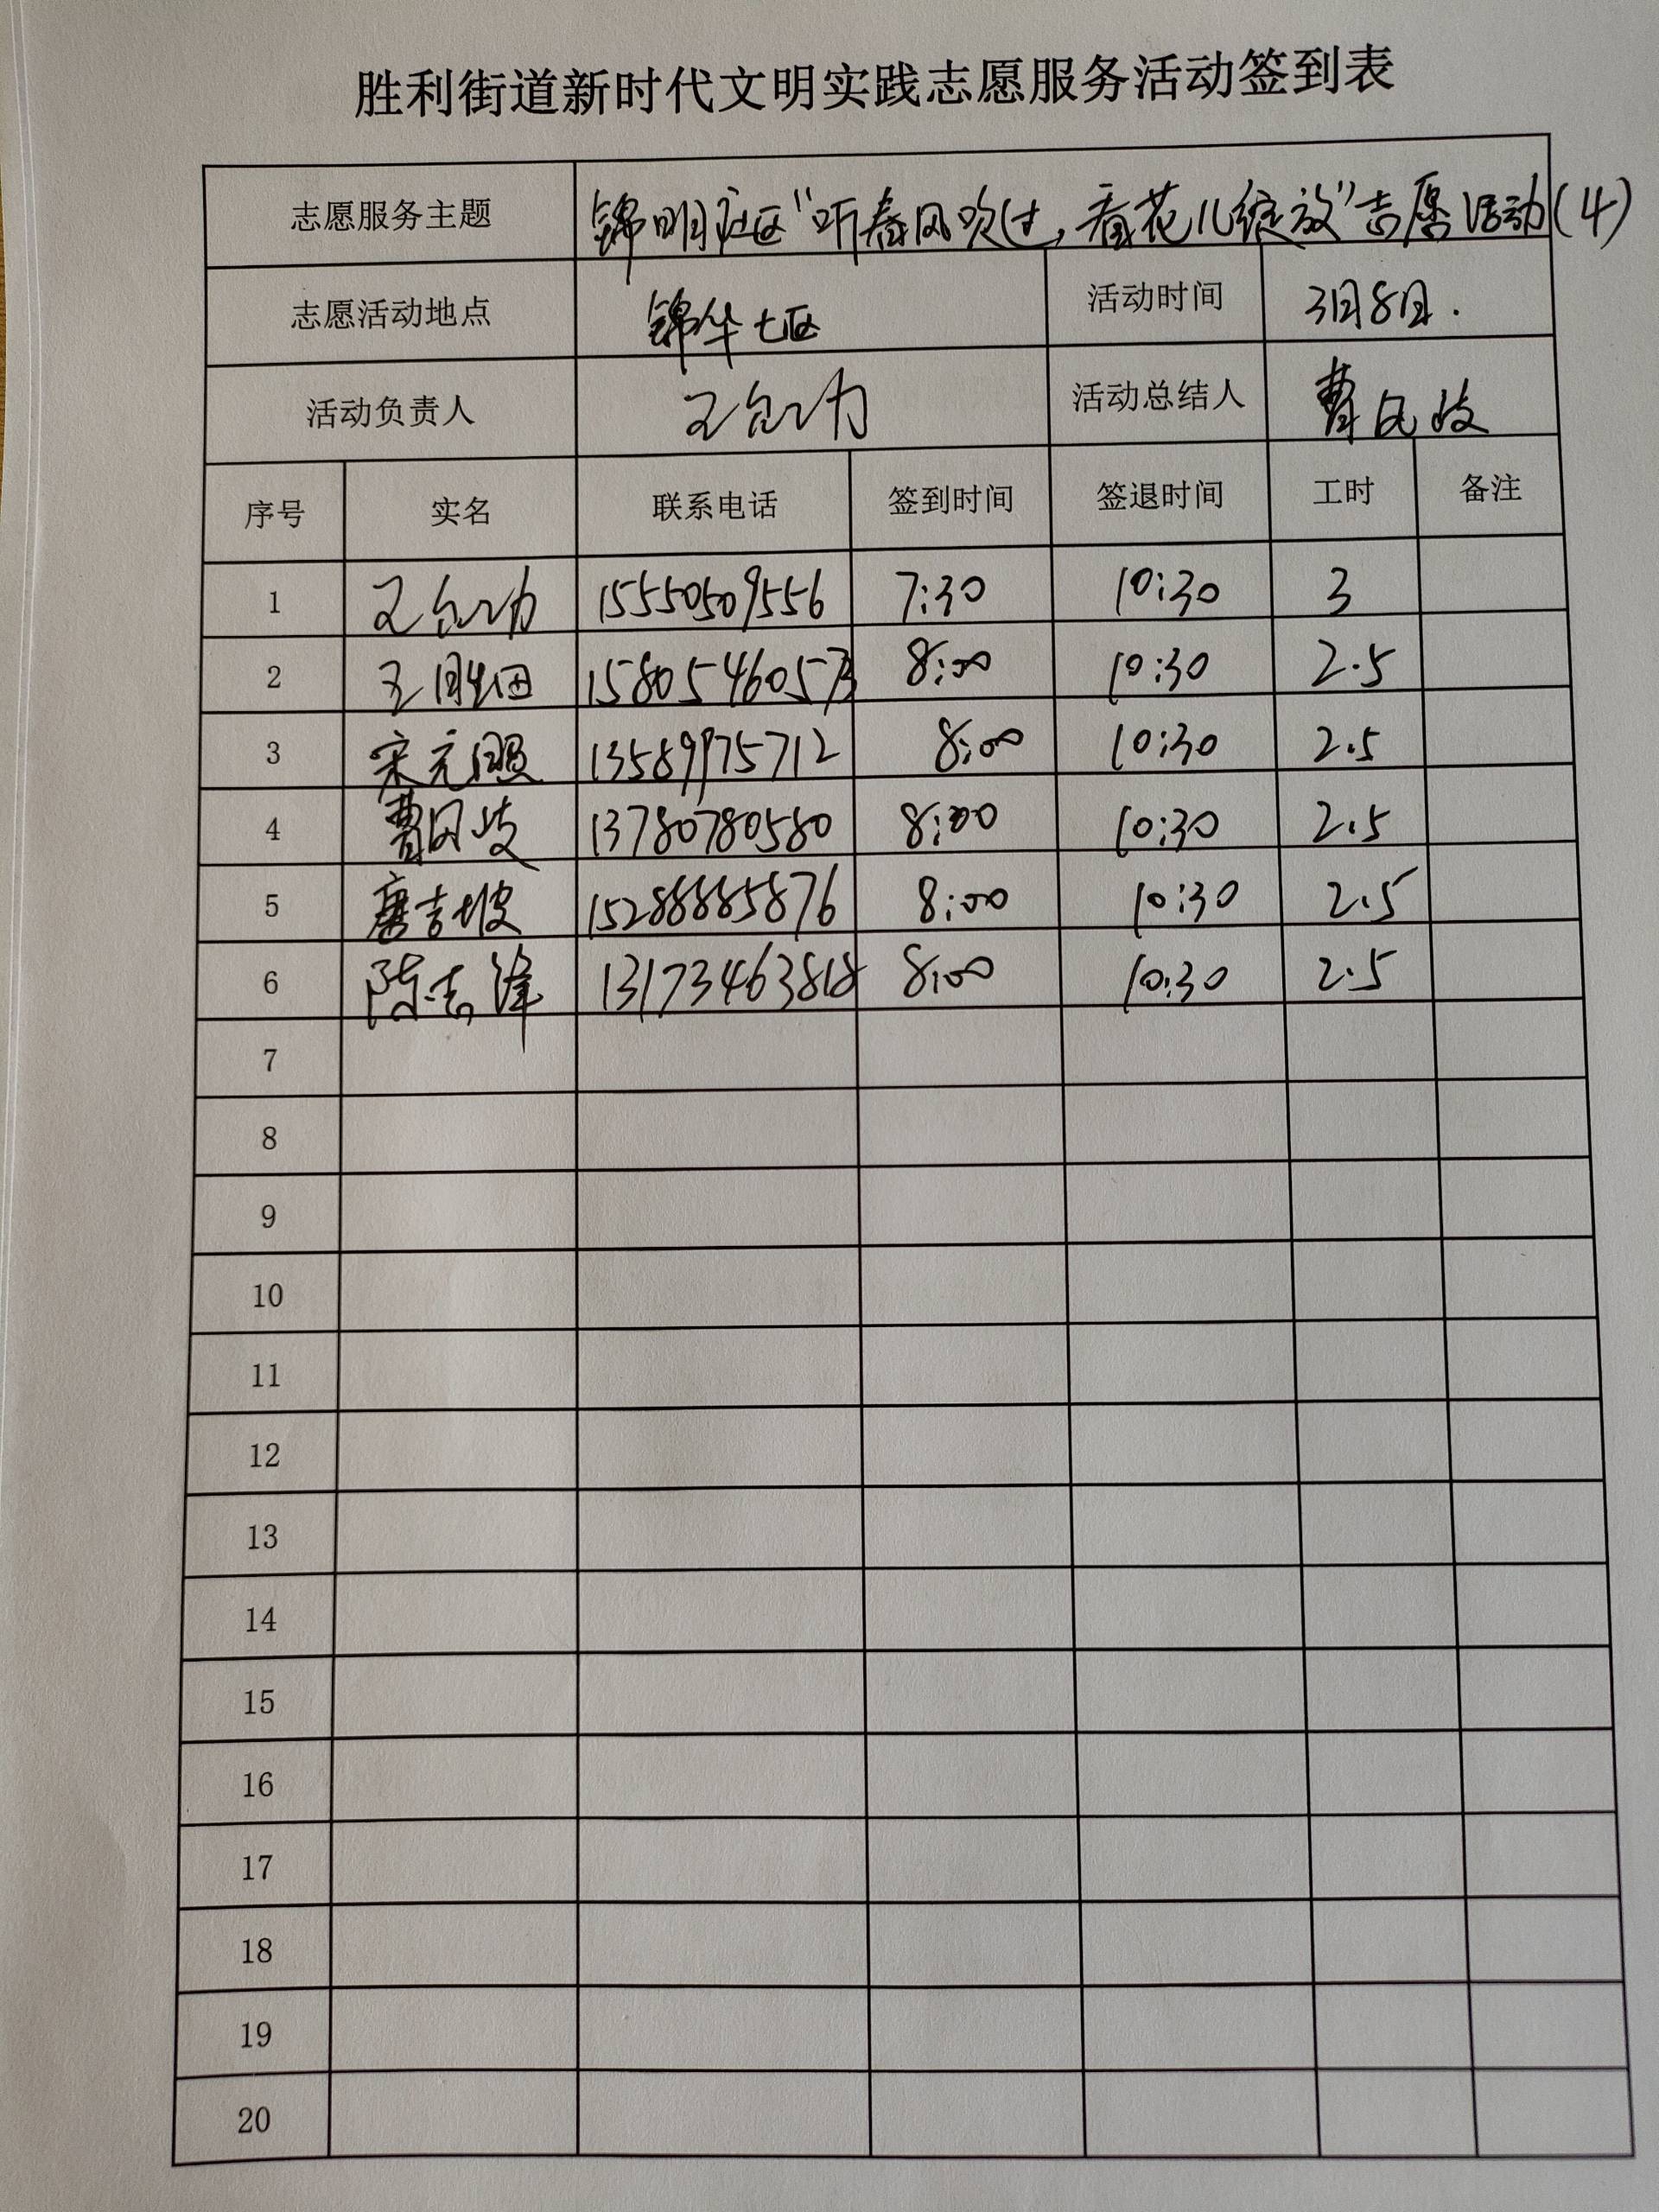 胜利街道新时代文明实践志愿服务活动签到表
志愿服务主题 锦明社区“听春风吹过,看花儿绽放”志愿活动(4)
志愿活动地点 锦华七区 活动时间 3月8日.
活动负责人 王台功 活动总结人 曹风岐
序号 实名 联系电话 签到时间 签退时间 工时 备注
1 王台功 15550509556 7:30 10:30 3
2 王 15805460573 8:00 10:30 2.5
3 宋元照 13589975712 8:00 10:30 2.5
4 曹风岐 13780780580 8:00 10:30 2.5
5 唐吉坡 15288885876 8:00 10:30 2.5
6 陈志泽 13173463818 8:00 10:30 2.5
7
8
9
10
11
12
13
14
15
16
17
18
19
20